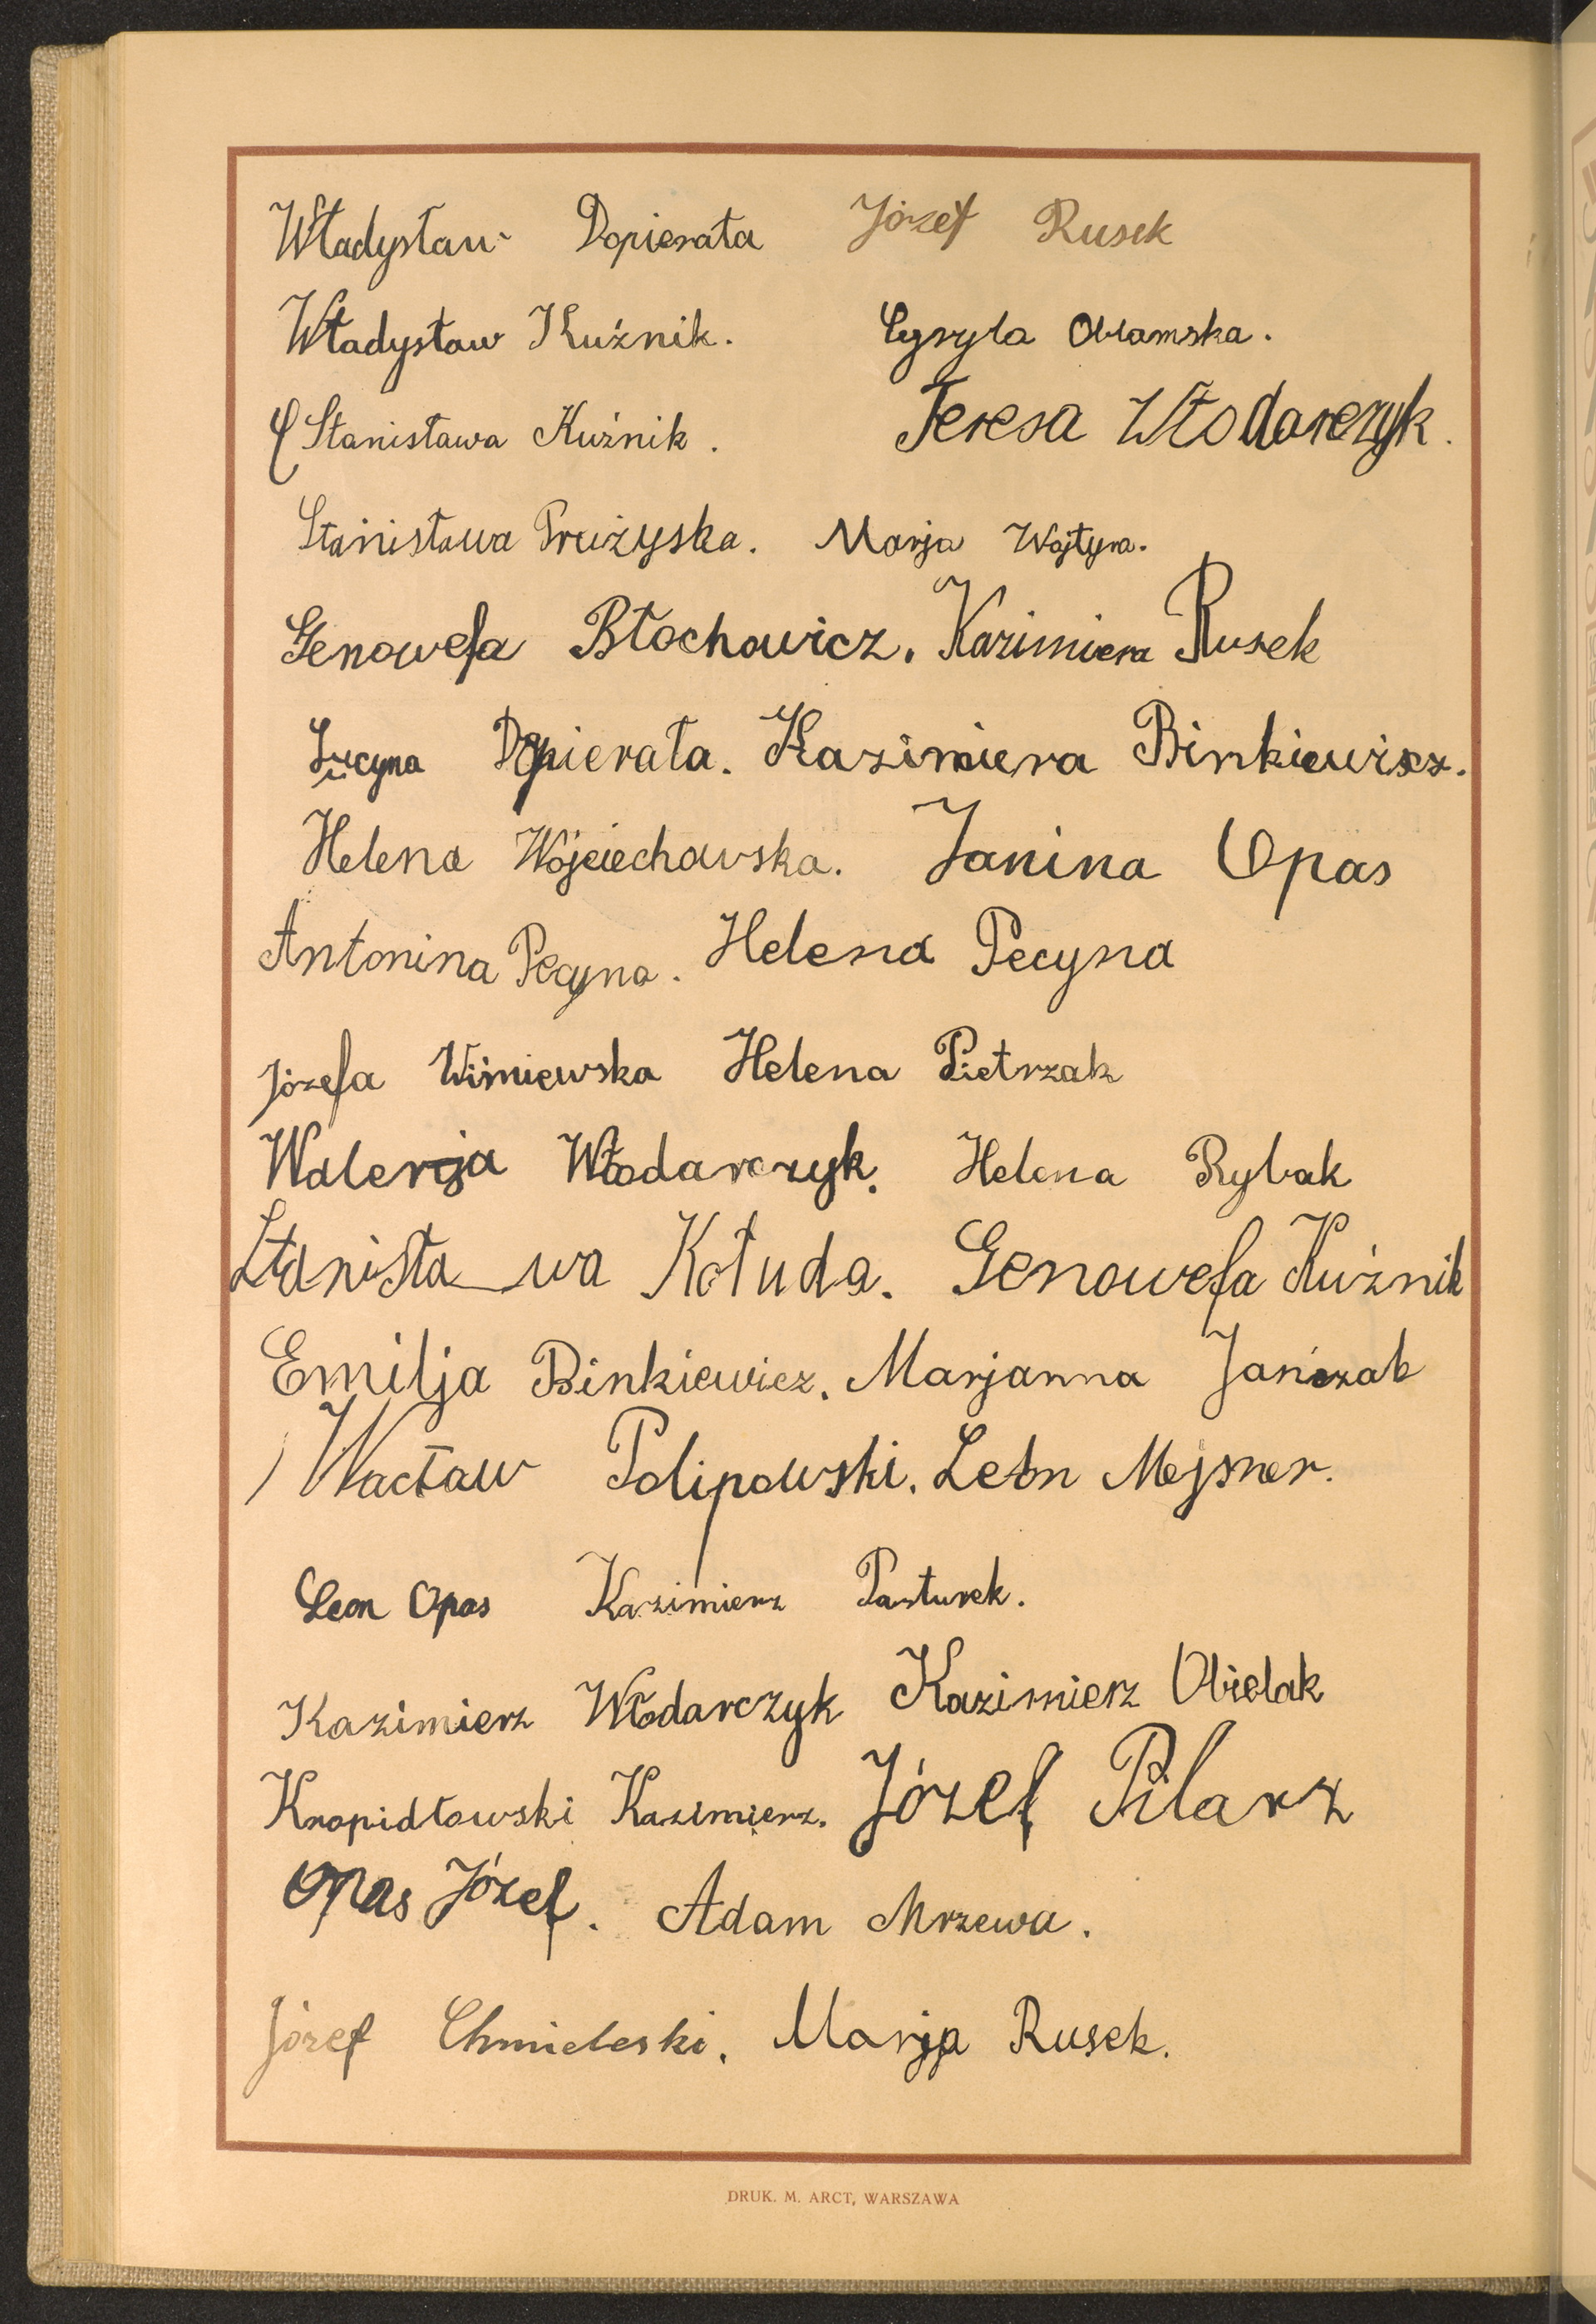 Władysław Dopierała Józef Rusek
Władysław Kuźnik. Cyryla Obramska.
Stanisława Kuźnik. Teresa Włodarczyk.
Stanisława Prużyska. Marja Wojtyra.
Genowefa Błochowicz. Kazimiera Rusek
Lucyna Dopierała. Kazimiera Binkiewicz.
Helena Wojciechowska. Janina Opas
Antonina Pecyna. Helena Pecyna
Józefa Wiśniewska Helena Pietrzak
Walerja Włodarczyk. Helena Rybak
Stanisława Kołuda. Genowefa Kuźnik
Emilja Binkiewicz. Marjanna Jańczak
Wacław Polipowski. Leon Mejsner.
Leon Opas Kazimierz Pasturek.
Kazimierz Włodarczyk Kazimierz Obielak
Kropidłowski Kazimierz. Józef Pilarz
Opas Józef. Adam Mrzewa.
Józef Chmieleski. Marja Rusek.
DRUK. M. ARCT, WARSZAWA